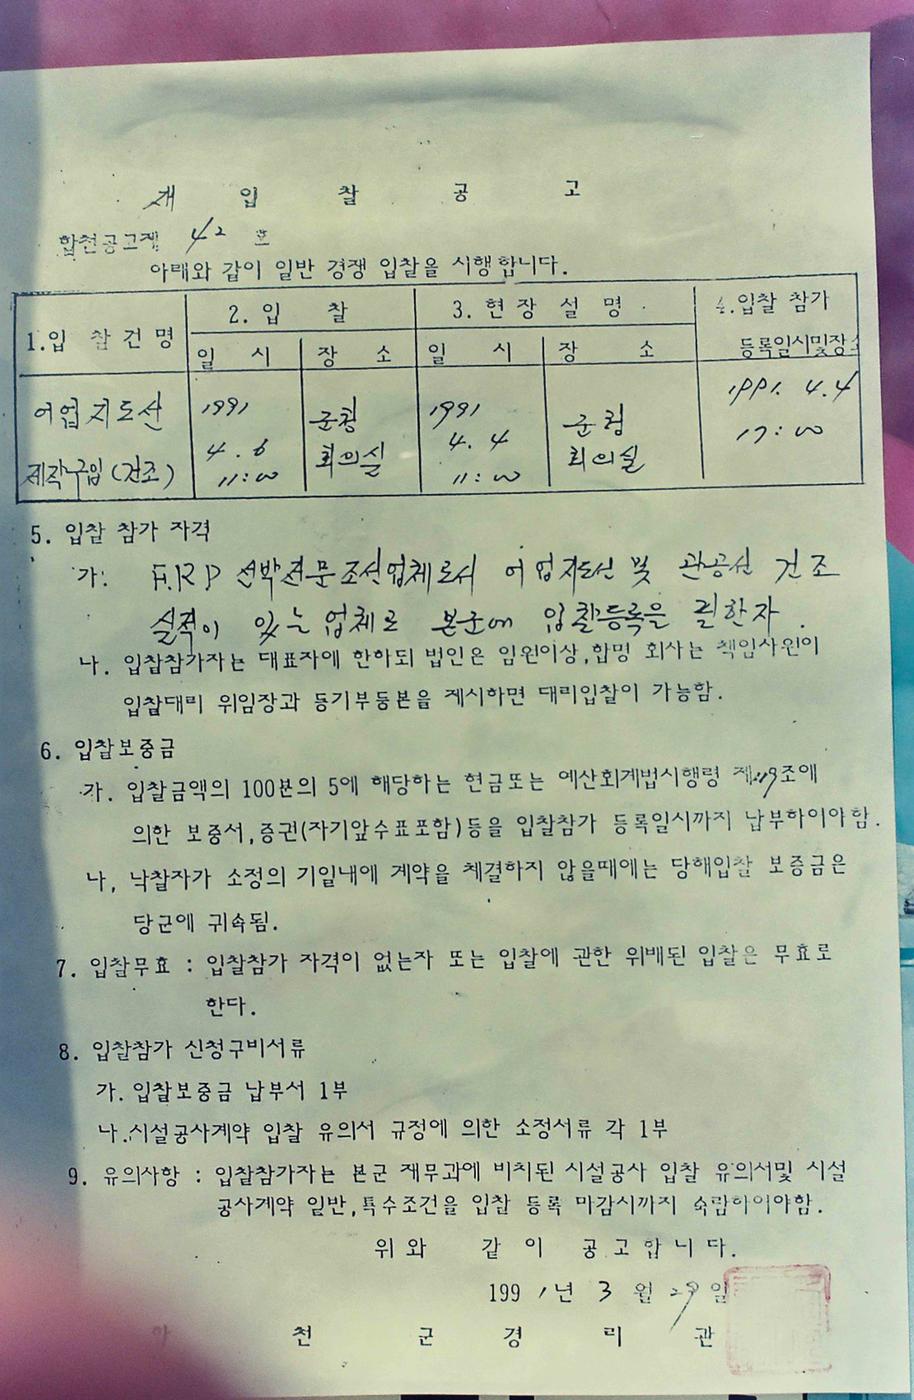 재 입 찰 공 고
합천공고제 42 호
아래와 같이 일반 경쟁 입찰을 시행합니다.
1.입 찰 건 명
2. 입 찰
3. 현 장 설 명
4.입찰 참가
등록일시및장소
일 시
장 소
일 시
장 소
어업지도선
제작구입 (건조)
1991
4. 6
11:00
군청
회의실
1991
4. 4
11:00
군청
회의실
1991. 4.4
17:00
5. 입찰 참가 자격
가. F.R.P 선박전문조선업체로서 어업지도선 및 관공선 건조
실적이 있는 업체로 본군에 입찰등록을 필한자.
나. 입찰참가자는 대표자에 한하되 법인은 임원이상,합명 회사는 책임사원이
입찰대리 위임장과 등기부등본을 제시하면 대리입찰이 가능함.
6. 입찰보증금
가. 입찰금액의 100분의 5에 해당하는 현금또는 예산회계법시행령 제 조에
의한 보증서,증권(자기앞수표포함)등을 입찰참가 등록일시까지 납부하이야함.
나, 낙찰자가 소정의 기일내에 계약을 체결하지 않을때에는 당해입찰 보증금은
당군에 귀속됨.
7. 입찰무효 : 입찰참가 자격이 없는자 또는 입찰에 관한 위배된 입찰은 무효로
한다.
8. 입찰참가 신청구비서류
가. 입찰보증금 납부서 1부
나.시설공사계약 입찰 유의서 규정에 의한 소정서류 각 1부
9. 유의사항 : 입찰참가자는 본군 재무과에 비치된 시설공사 입찰 유의서및 시설
공사계약 일반,특수조건을 입찰 등록 마감시까지 숙람하이야함.
위와 같 이 공고합니다.
1991년 3 월 29일
천 군 경 리 관